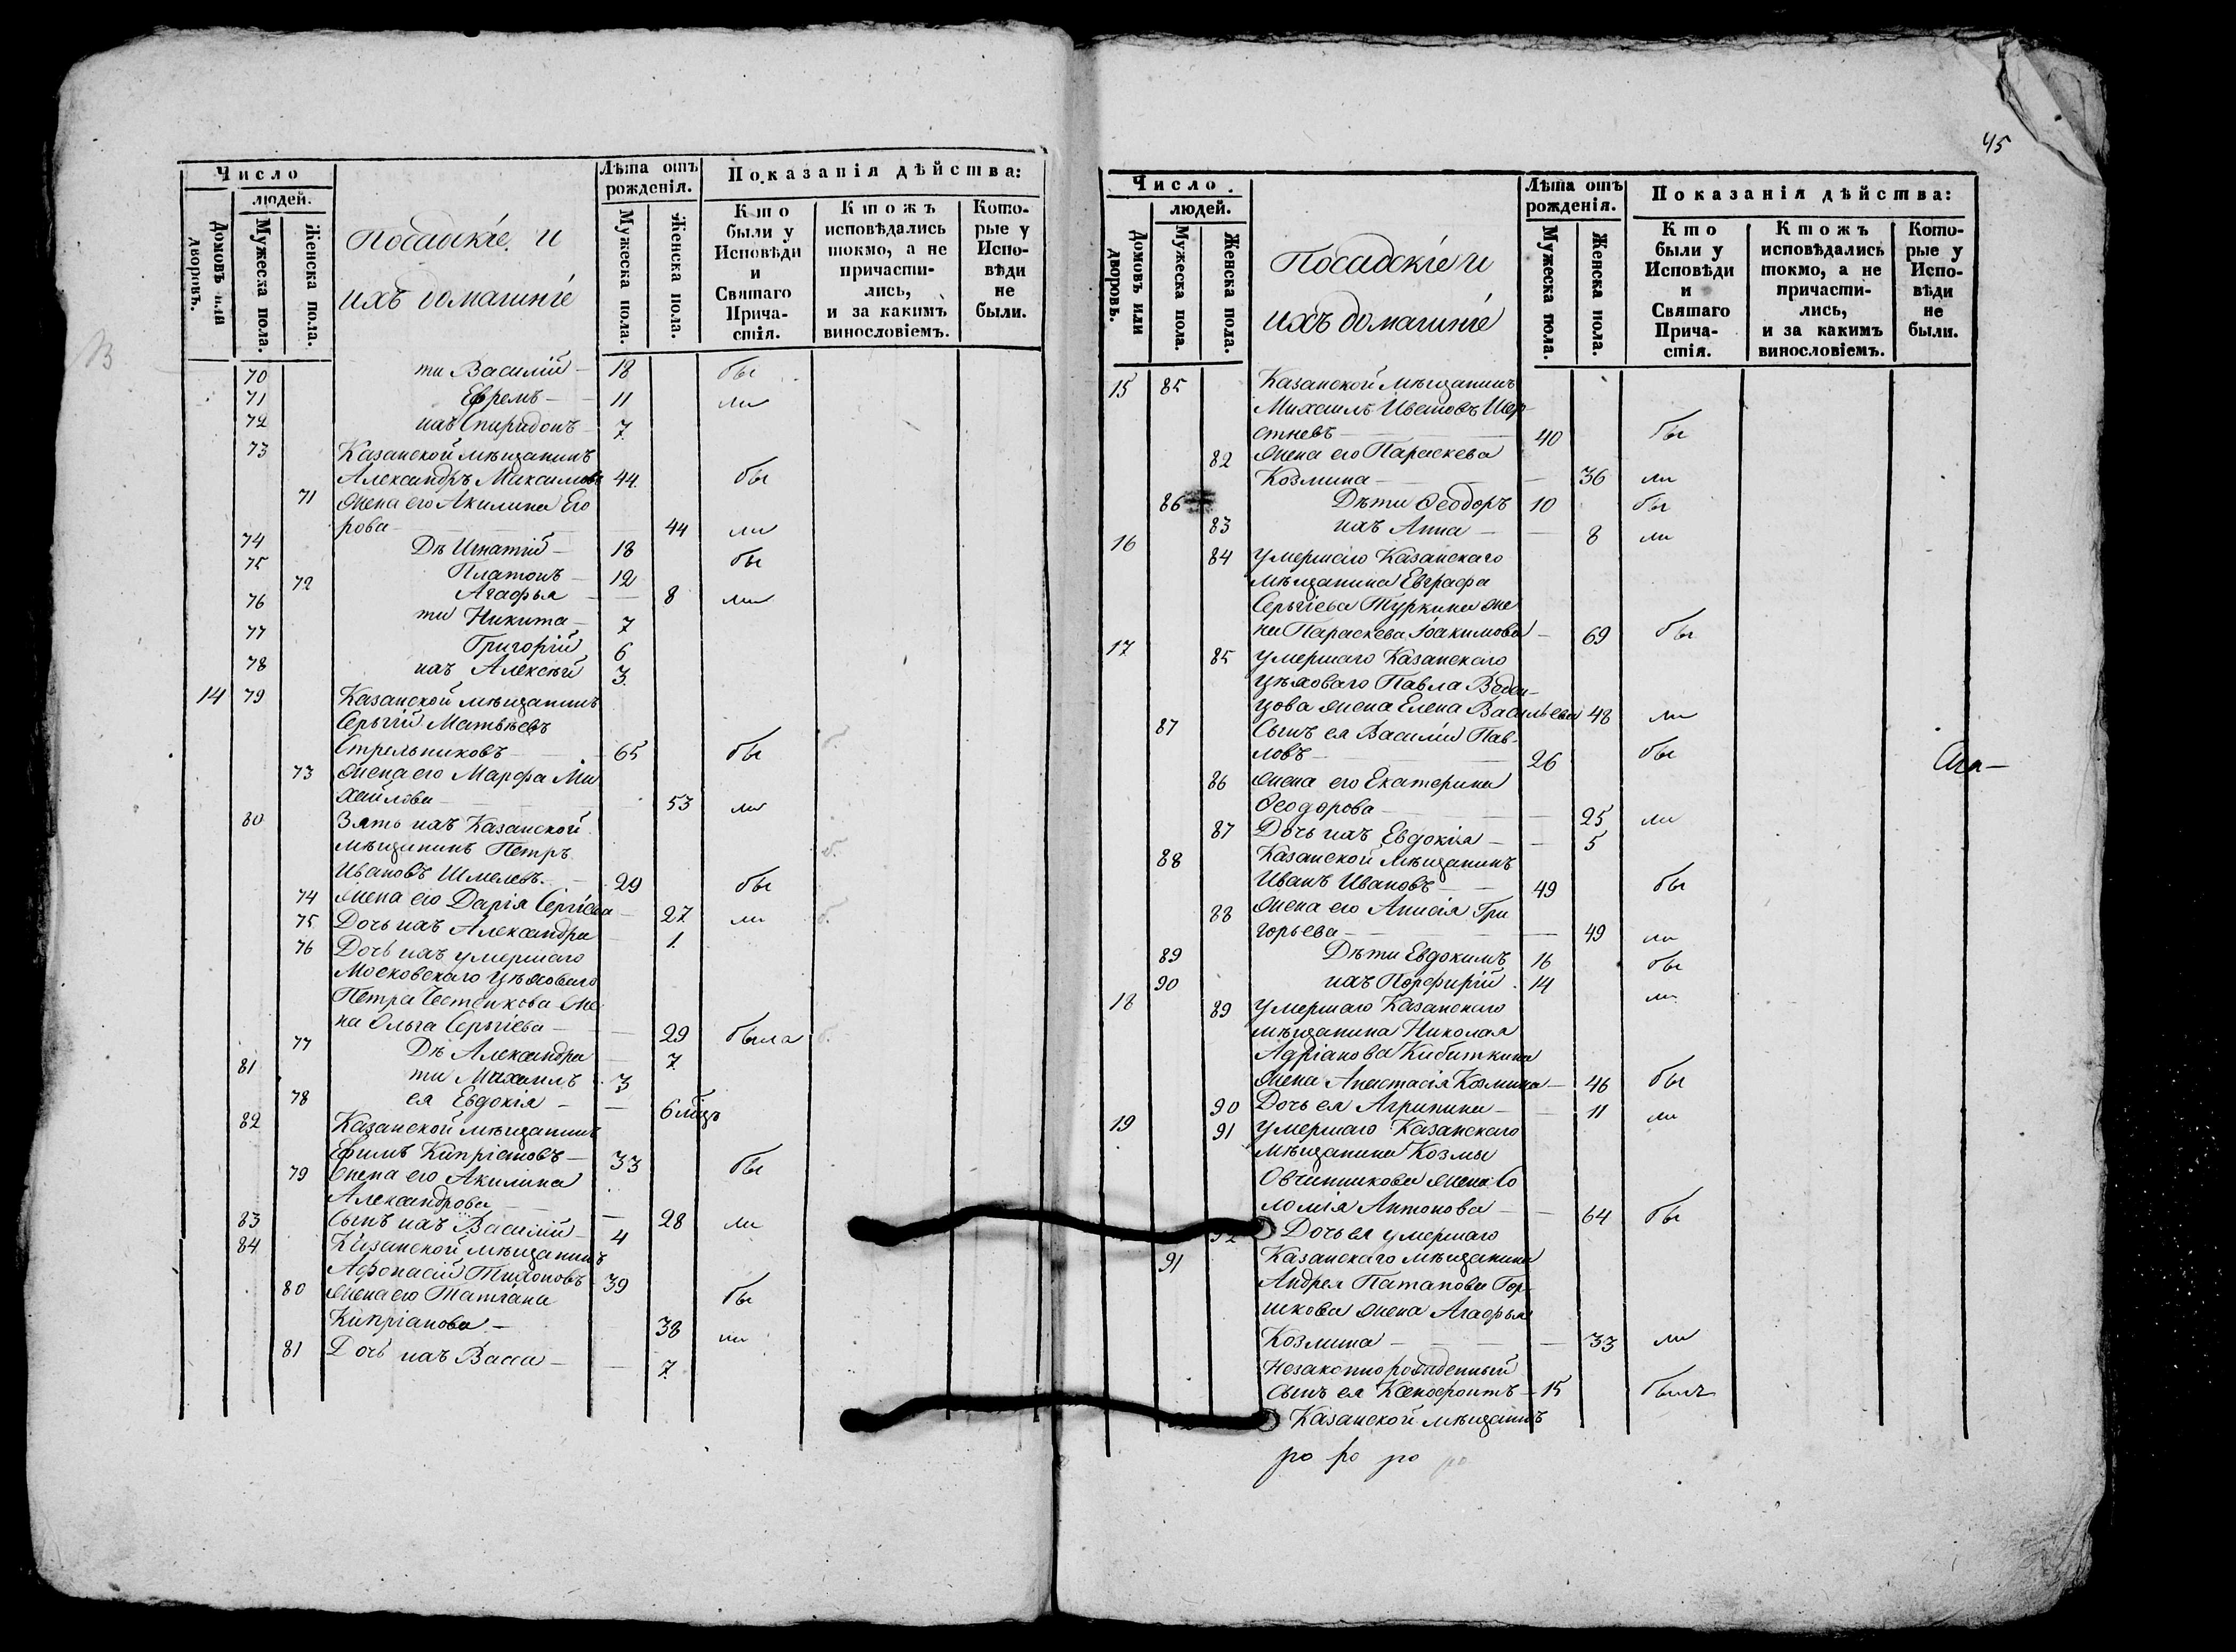 Число
людей.
Домовъ или дворовъ.
Мужеска пола.
Женска пола.
Посадскіе и
ихъ домашніе
Лѣта отъ рожденія.
Мужеска пола.
Женска пола.
Показанія дѣйства:
Кто были у Исповѣди и Святаго Прича-стія.
Ктожъ исповѣдались токмо, а не причасти-лись, и за какимъ винословіемъ.
Кото-рые у Испо-вѣди не были.
70 ти Василій 18 бы
71 Ефремъ 11 ли
72 ихъ Спиридонъ 7
73 Казанской мѣщанинъ
Александръ Максимовъ 44 бы
71 Жена его Акилина Его
рова 44 ли
74 Дѣ Игнатій 18 бы
75 Платонъ 12
72 Агафья 8 ли
76 ти Никита 7
77 Григорій 6
78 ихъ Алексѣй 3
14 79 Казанской мѣщанинъ
Сергій Матвѣевъ
Стрельниковъ 65 бы
73 Жена его Марфа Ми
хайлова 53 ли
80 Зять ихъ Казанской
мѣщанинъ Петръ
Ивановъ Шмелевъ 29 бы
74 Жена его Дарія Сергіева 27 ли б.
75 Дочь ихъ Александра 1
76 Дочь ихъ умершаго
Московскаго цѣховаго
Петра Честенкова же
на Ольга Сергіева 29 была б.
77 Дѣ Александра 7
81 ти Михаилъ 3
78 ея Евдокія 6 мѣцъ
82 Казанской мѣщанинъ
Ефимъ Кипріановъ 33 бы
79 Жена его Акилина
Александрова 28 ли
83 Сынъ ихъ Василій 4
84 Казанской мѣщанинъ
Афонасій Тихоновъ 39 бы
80 Жена его Татіана
Кипріанова 38 ли
81 Дочь ихъ Васса 7
45
Число
людей.
Домовъ или дворовъ.
Мужеска пола.
Женска пола.
Посадскіе и
ихъ домашніе
Лѣта отъ рожденія.
Мужеска пола.
Женска пола.
Показанія дѣйства:
Кто были у Исповѣди и Святаго Прича-стія.
Ктожъ исповѣдались токмо, а не причасти-лись, и за какимъ винословіемъ.
Кото-рые у Испо-вѣди не были.
15 85 Казанской мѣщанинъ
Михаилъ Ивановъ Шер-
стневъ 40 бы
82 Жена его Параскева
Козмина 36 ли
86 Дѣти Феодоръ 10 бы
83 ихъ Анна 8 ли
16 84 Умершаго Казанскаго
мѣщанина Евграфа
Сергіева Туркина же
на Параскева Іоакимова 69 бы
17 85 Умершаго Казанскаго
цѣховаго Павла
цова жена Елена Васильева 48 ли
87 Сынъ ея Василій Пав-
ловъ 26 бы
86 Жена его Екатерина
Феодорова 25 ли
87 Дочь ихъ Евдокія 5
88 Казанской мѣщанинъ
Иванъ Ивановъ 49 бы
88 Жена его Анисія Гри
горьева 49 ли
89 Дѣти Евдокимъ 16 бы
90 ихъ Порфирій 14 ли
18 89 Умершаго Казанскаго
мѣщанина Николая
Адріанова Кибиткина
жена Анастасія Козмина 46 бы
90 Дочь ея Агрипина 11 ли
19 91 Умершаго Казанскаго
мѣщанина Козмы
Овчинникова жена Со
ломія Антонова 64 бы
92 Дочь ея умершаго
91 Казанскаго мѣщанина
Андрея Патапова Гор
шкова жена Агафья
Козмина 33 ли
Незаконнорожденный
сынъ ея Ксенофонтъ 15 былъ
Казанской мѣщанинъ
ро ро ро